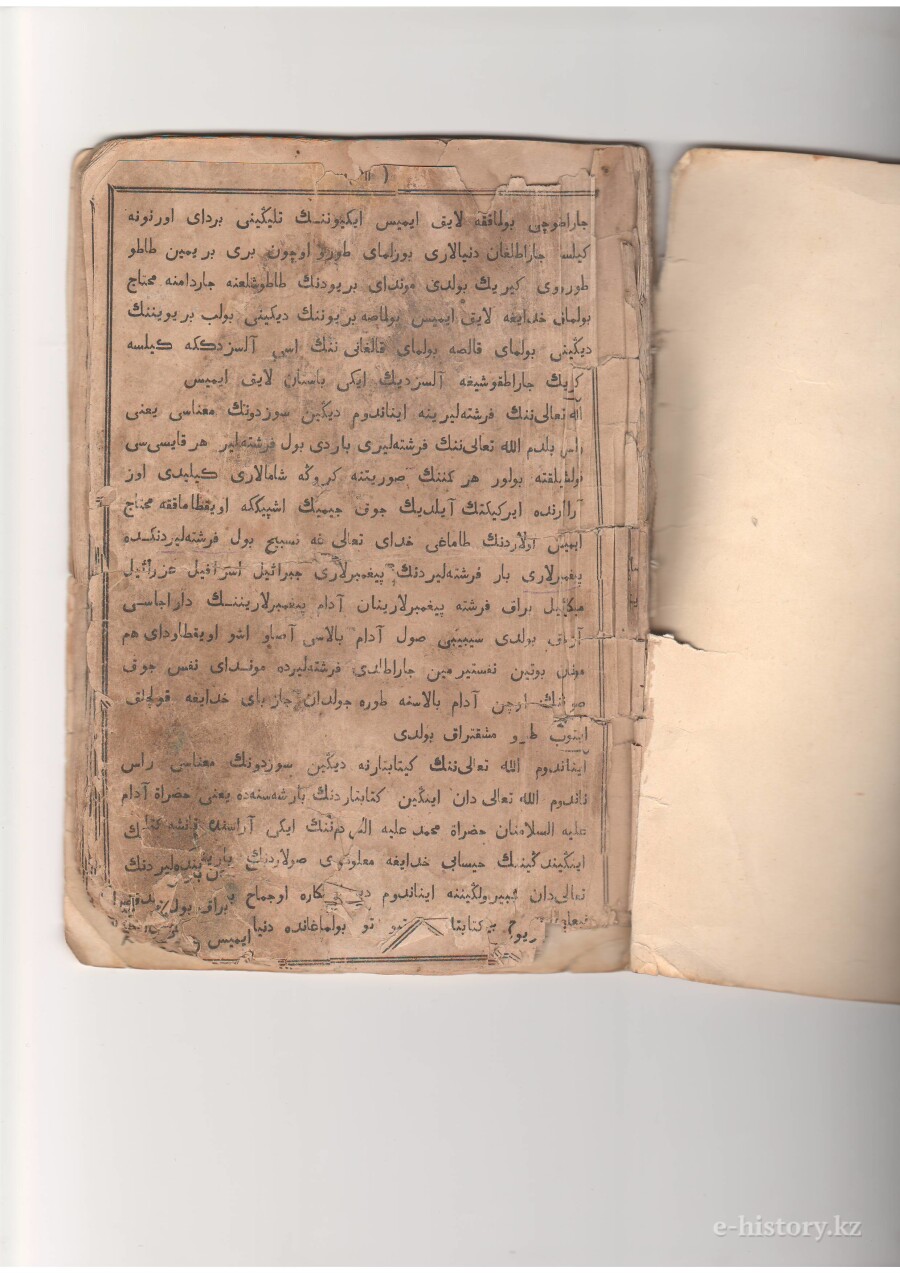 جاراطوچی بولماققه لایق ایمیس ایکیوننك تلیگینی بردای اورنونه
کیلسه جاراطلغان دنیالاری بورلمای طورو اوچون بری بریمین طاطو
طوروی کیریك بولدی موندای بریودنك طاطوشلغنه جاردامنه محتاج
بولماق خدایغه لایق ایمیس بولماصه بریوننك دیکینی بولب بریویننك
دیگینی بولمای قالصه بولمای قالغانی ننك اسی آلسزدککه کیلسه
کریك جاراطقوشیغه آلسزدیك ایکی باستان لایق ایمیس
الله تعالی ننك فرشته‌لیرینه ایناندوم دیگین سوزدونك معناسی یعنی
راس بلدم الله تعالی ننك فرشته‌لیری باردی بول فرشته‌لیر هر قایسی سی
بولور هر کمننك صوریتنه کروگه شامالاری کیلیدی اوز
آرالرنده ایرکیكنك آیلدیك جوق جیمیك اشپیککه اویقطامافقه محتاج
ایمیس اولاردنك طاماغی خدای تعالی غه تسبیح بول فرشته‌لیردنکده
پیغمبرلاری بار فرشته‌لیردنك پیغمبرلاری جبرائیل اسرافیل عزرائیل
میکائیل براق فرشته پیغمبرلارینان آدام پیغمبرلاریننك داراجاسی
آرتق بولدی سیبیبی صول آدام بالاسی آصاو اشو اویقطاودای هم
مونان بوتین نفستیرمین جاراطالدی فرشته‌لیرده موندای نفس جوق
صوننك اوچن آدام بالاسنه طوره جولدان جازبای خدایغه قولچلق
ایتوب طورو مشقتراق بولدی
ایناندوم الله تعالی ننك کیتابتارنه دیگین سوزدونك معناسی راس
ناندوم الله تعالی دان اینگین کتابتاردنك بارشه‌سنه‌ده یعنی حضراة آدام
علیه السلامنان حضراة محمد علیه السلامننك ایکی آراسنده قانشه کتاب
اینگیندگیننك حیسابی خدایغه معلوموی صولاردنك باریه بنده‌لیردنك
تعالی دان ایناندوم اوجماح براق بول
کتابتا تو بولماغانده دنیا
ایمیس
e-history.kz